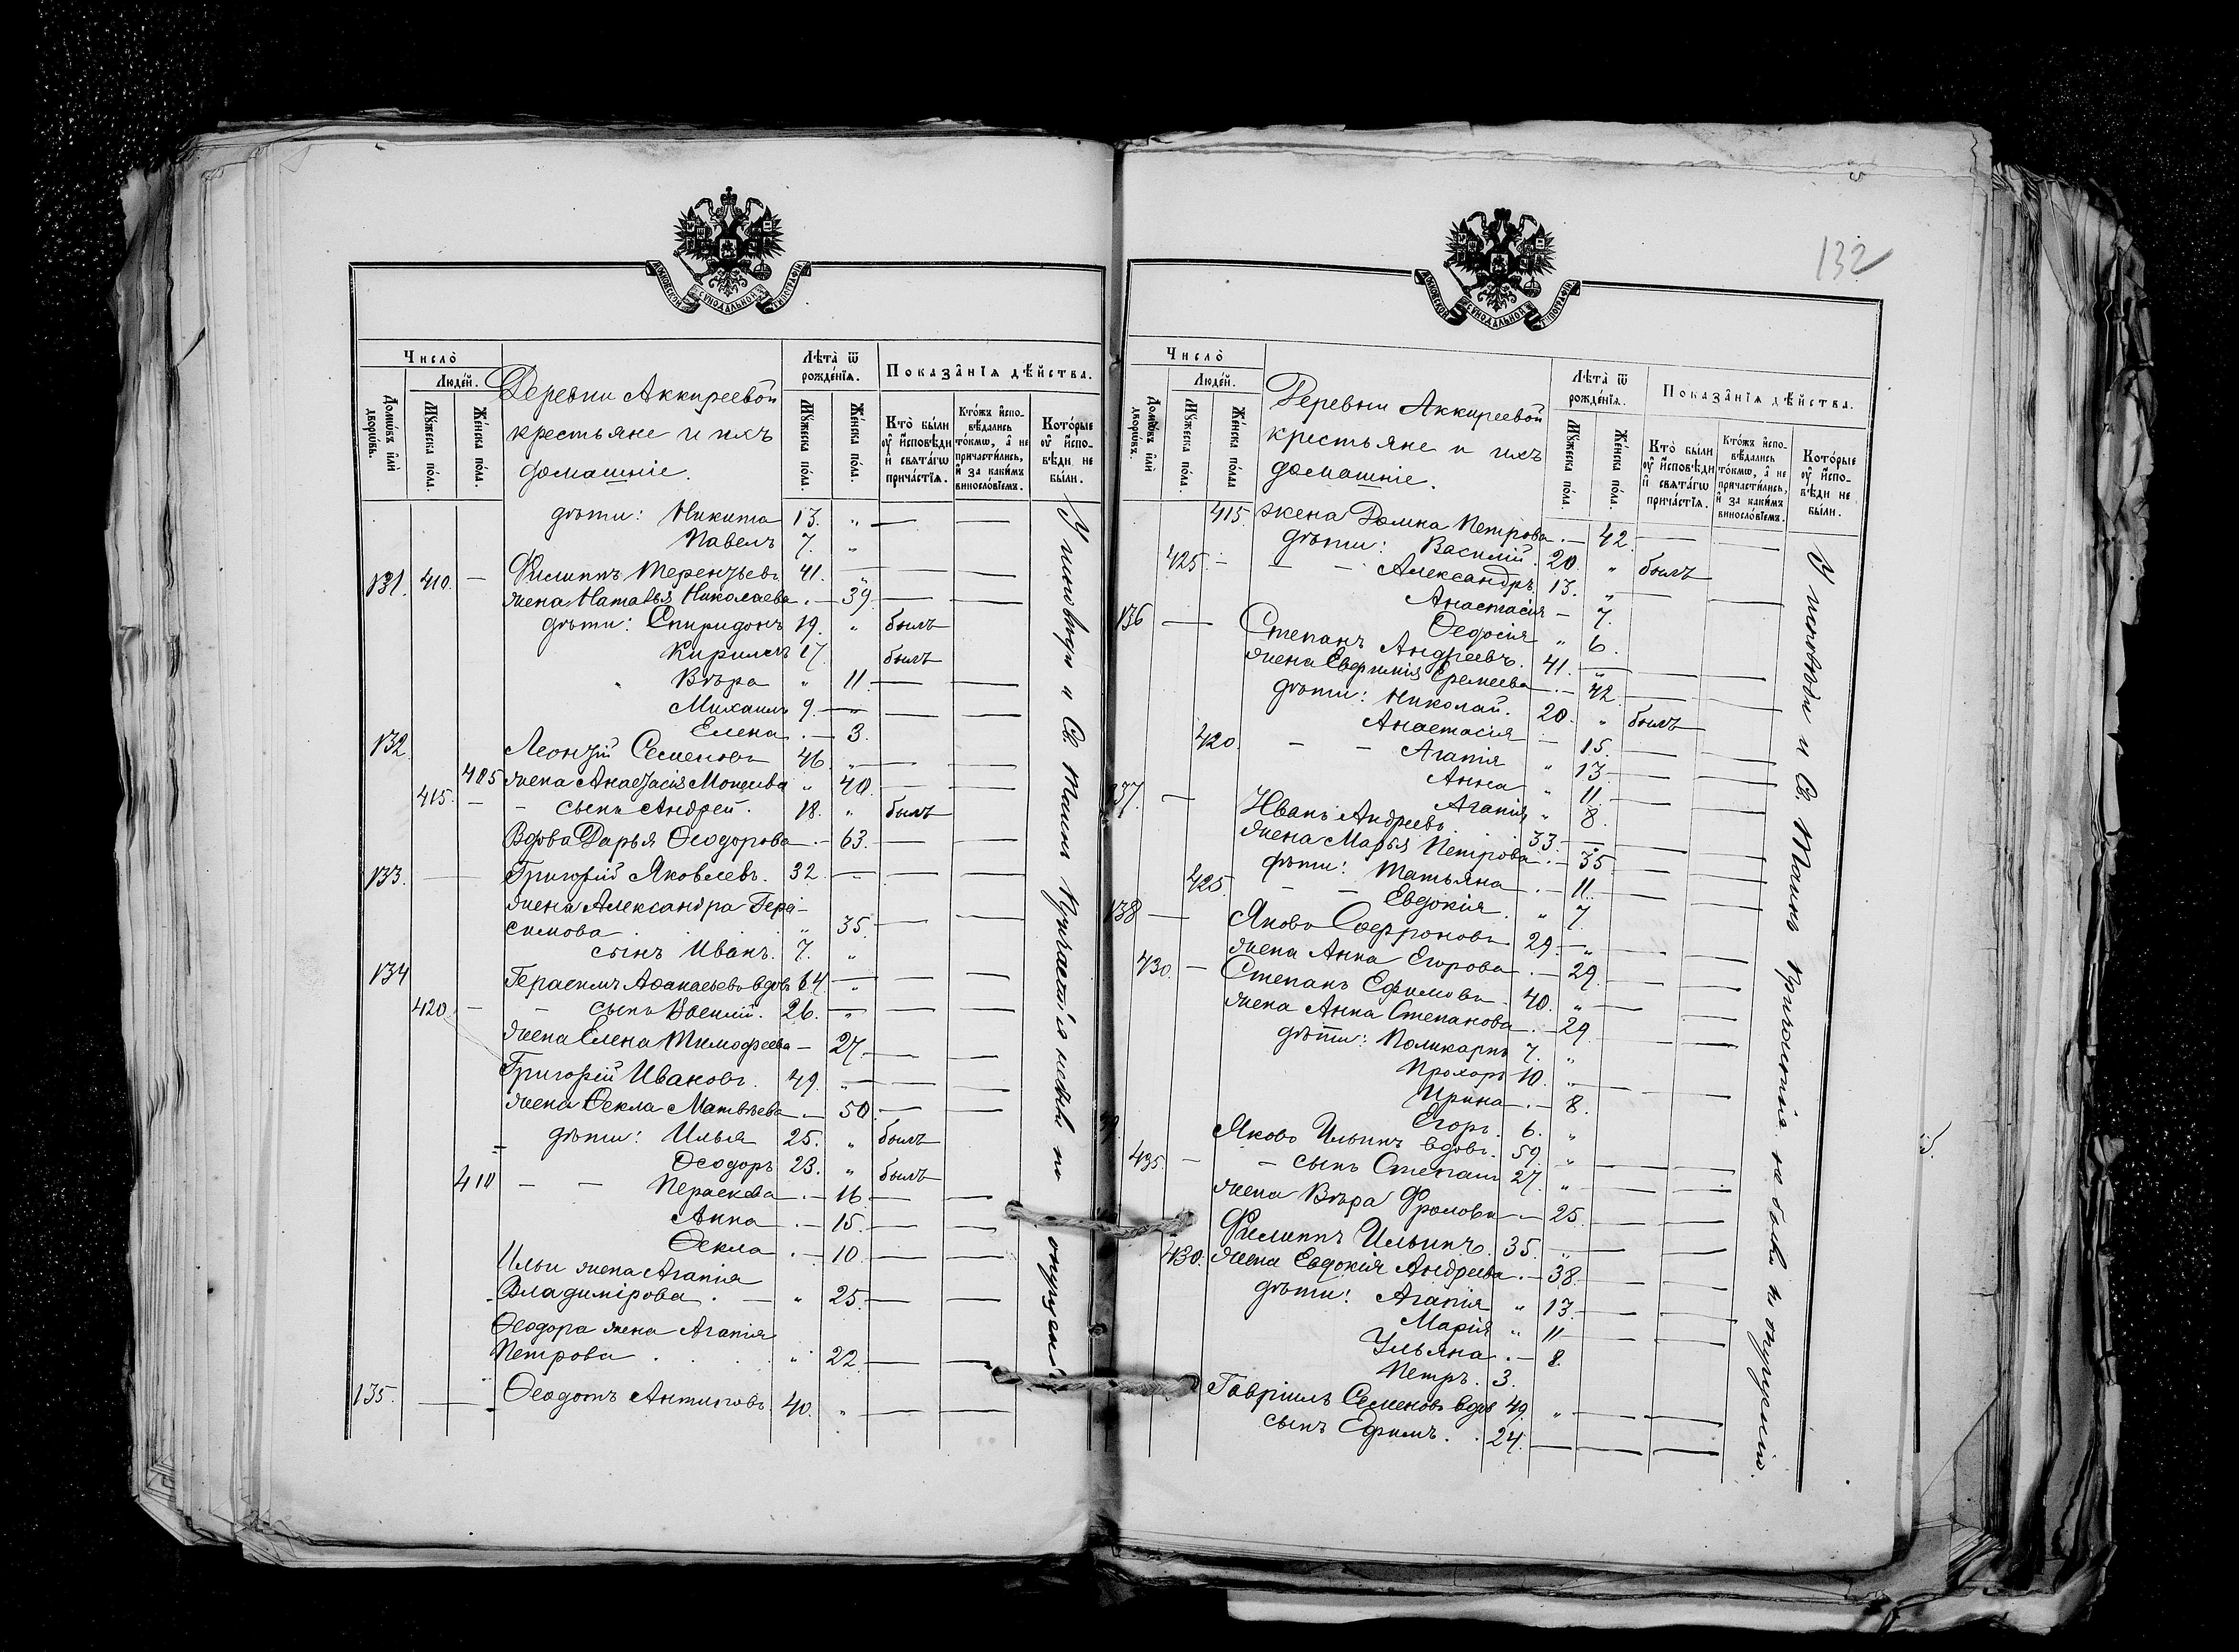 МОСКОВСКОЙ СѴНОДАЛЬНОЙ ТИПОГРАФІИ
Число̀
Люде́й.
Домѡ́въ и҆лѝ дворѡ́въ.
Мꙋ́жеска по́ла.
Же́нска по́ла.
Деревни Аккиреевой
крестьяне и ихъ
домашніе.
Лѣта̀ ѿ рожде́нїѧ.
Мꙋ́жеска по́ла.
Же́нска по́ла.
Показа̑нїѧ дѣ́йства.
Кто̀ бы́ли ᲂу҆ и҆́сповѣди и҆ свѧта́гѡ прича́стїѧ.
Кто́жъ и҆спо­вѣ́дались то́кмѡ, а҆ не причасти́лись, и҆ за каки́мъ винослов́їемъ.
Кото́рые ᲂу҆ и҆́спо­вѣди не бы́ли.
дѣти: Никита 13. „ — —
Павелъ 7. „
131. 410. — Филиппъ Терентьевъ 41. — — —
жена Наталья Николаева . — 39. — —
дѣти: Спиридонъ 19. „ былъ
Кириллъ 17. былъ
Вѣра „ 11. — —
Михаилъ 9. — — —
Елена . — 3.
132. Леонтій Семеновъ 46. „ — —
405 жена Анастасія Моисеева „ 40. — —
415. — — сынъ Андрей. 18. „ былъ
Вдова Дарья Ѳеодорова . — 63. — —
133. — Григорій Яковлевъ. 32 — — —
жена Александра Гера-
симова . . . „ 35. — —
сынъ Иванъ. 7. „
134 Герасимъ Аѳанасьевъ вдовъ 64 „ — —
420. — — сынъ Василій. 26. „ — —
жена Елена Тимофеева — 27. — —
Григорій Ивановъ. 49. „ — —
жена Ѳекла Матвѣева . — 50. — —
дѣти: Илья 25. „ былъ
Ѳеодоръ 23. „ былъ
410 — — Пераскева . — 16. — —
Анна . — 15. — —
Ѳекла . — 10. — —
Ильи жена Агапія
Владимірова . — „ 25. — —
Ѳеодора жена Агапія
Петрова . . . . „ 22. — —
135. — Ѳеодотъ Антиповъ. 40. „ — —
У исповѣди и Св. Таинъ Причастія не были по опущенію
132
МОСКОВСКОЙ СѴНОДАЛЬНОЙ ТИПОГРАФІИ
Число̀
Люде́й.
Домѡ́въ и҆лѝ дворѡ́въ.
Мꙋ́жеска по́ла.
Же́нска по́ла
Деревни Аккиреевой
крестьяне и ихъ
домашніе.
Лѣта̀ ѿ рожде́нїѧ.
Мꙋ́жеска по́ла.
Же́нска по́ла.
Показа̑нїѧ дѣ́йства.
Кто̀ бы́ли ᲂу҆ и҆́сповѣди и҆ свѧта́гѡ прича́стїѧ.
Кто́жъ и҆спо­вѣ́дались то́кмѡ, а҆ не причасти́лись, и҆ за каки́мъ винослов́їемъ.
Кото́рые ᲂу҆ и҆́спо­вѣди не бы́ли.
415. жена Домна Петрова . — 42. — —
дѣти: Василій. 20. „ былъ
425. — — — Александръ 13. „ — —
Анастасія — 7.
Ѳеодосія „ 6.
136 — Степанъ Андреевъ. 41. „ — —
жена Евфимія Еремеева . — 42. — —
дѣти: Николай. 20. „ былъ
Анастасія — 15. — —
420. — — Агапія „ 13. — —
Анна „ 11. — —
Агапія „ 8.
137. — Иванъ Андреевъ. 33. „ — —
жена Марья Петрова . — 35. — —
дѣти: Татьяна . — 11. — —
425. — — Евдокія. „ 7.
138 — Яковъ Софроновъ 29. „ — —
жена Анна Егорова . — 29. — —
430. — Степанъ Ефимовъ. 40. „ — —
жена Анна Степанова . — 29. — —
дѣти: Поликарпъ 7. „
Прохоръ 10. „ — —
Ирина . — 8.
Егоръ. 6. „
Яковъ Ильинъ вдовъ. 59. „ — —
435. — — сынъ Степанъ 27. „ — —
жена Вѣра Фролова . — 25. — —
Филиппъ Ильинъ. 35. „ — —
430. жена Евдокія Андреева . — 38. — —
дѣти: Агапія „ 13. — —
Марія „ 11 — —
Ульяна . — 8.
Петръ. 3.
Гавріилъ Семеновъ вдовъ 49. „ — —
сынъ Ефимъ. . 24. — — —
У исповѣди и Св. Таинъ Причастія не были по опущенію.